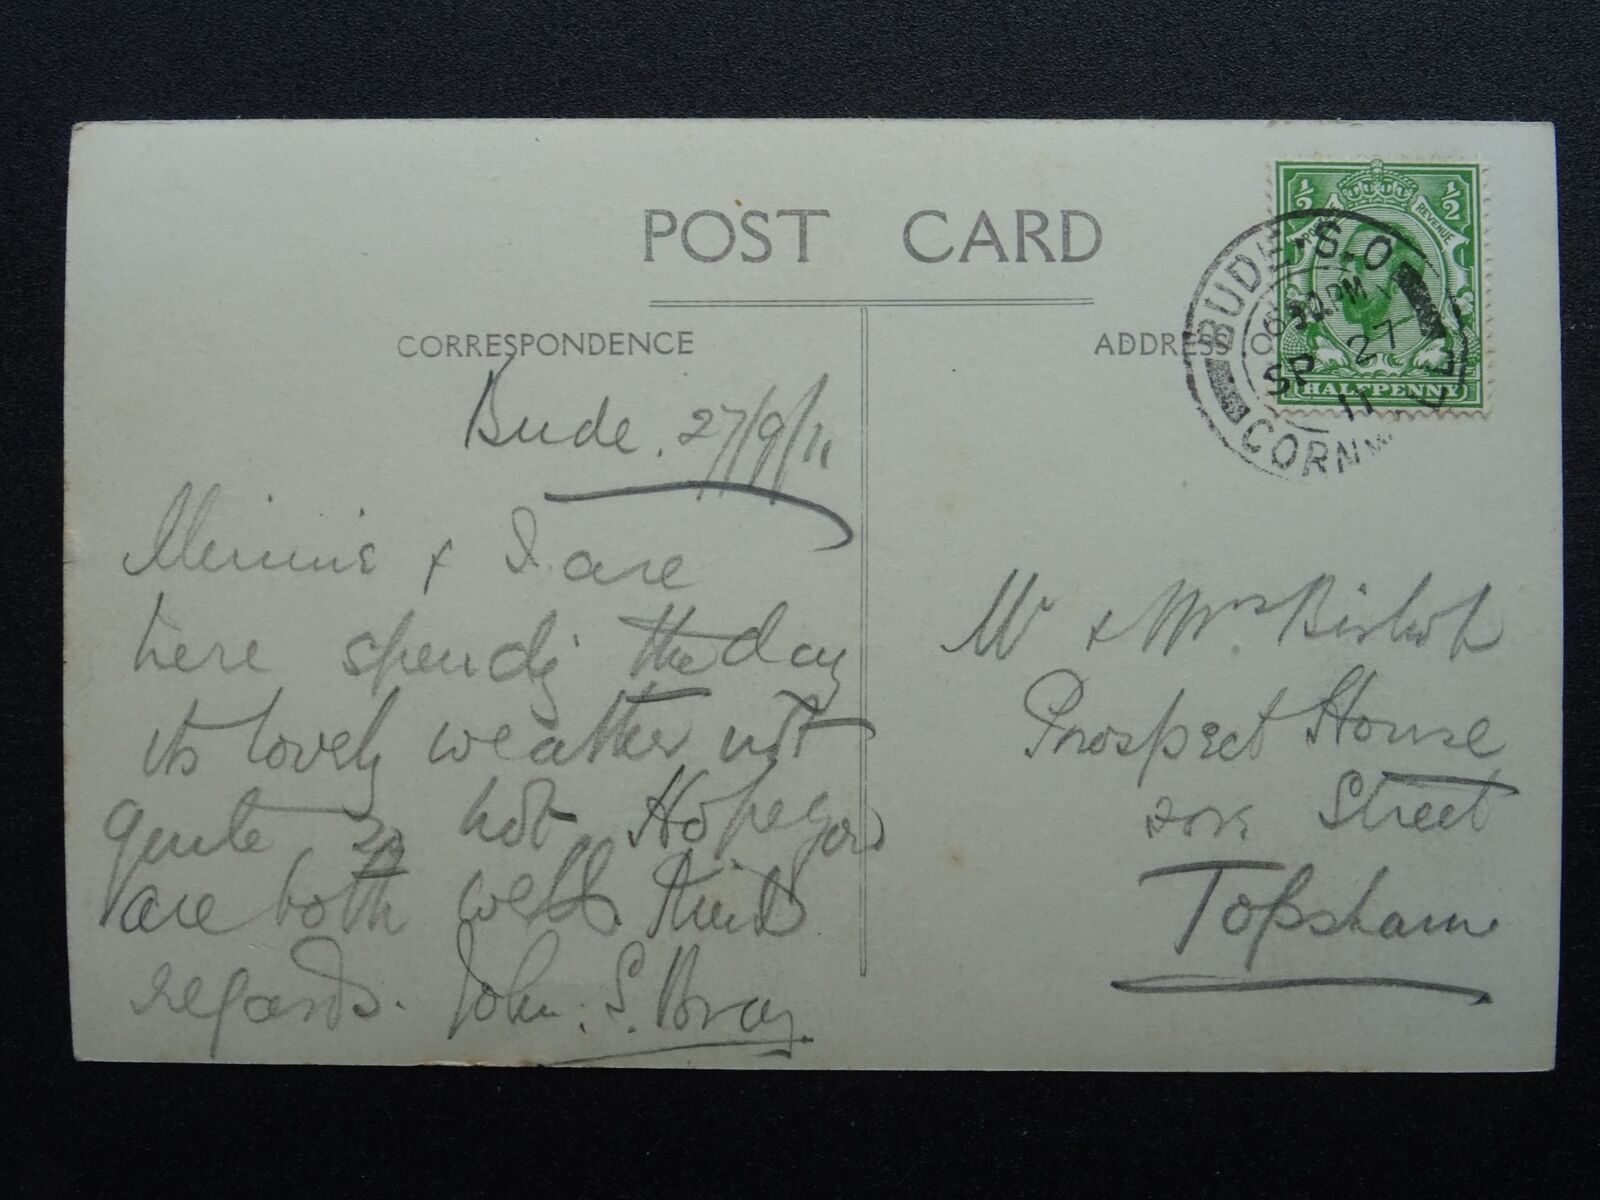 POST CARD
CORRESPONDENCE
ADDRESS O
½ ½
POS REVENUE
HALFPENNY
BUDE·S.O
PM
SP 27
11
CORNW
Bude. 27/9/11
Minnie & I are
here spendg the day
its lovely weather not
quite so hot Hope you
are both well. Kind
regards. John. S. Bray.
Mr & Mrs. Bishop
Prospect House
Street
Topsham